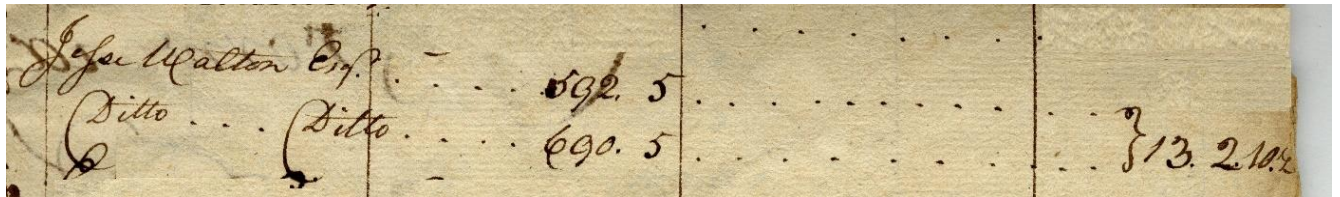 Jesse Walton Esqr. - . . . . 592. 5 . . . . . . . . . .
Ditto . . . Ditto . . . . . 690. 5 . . . . . . . . . . . } 13. 2. 10.